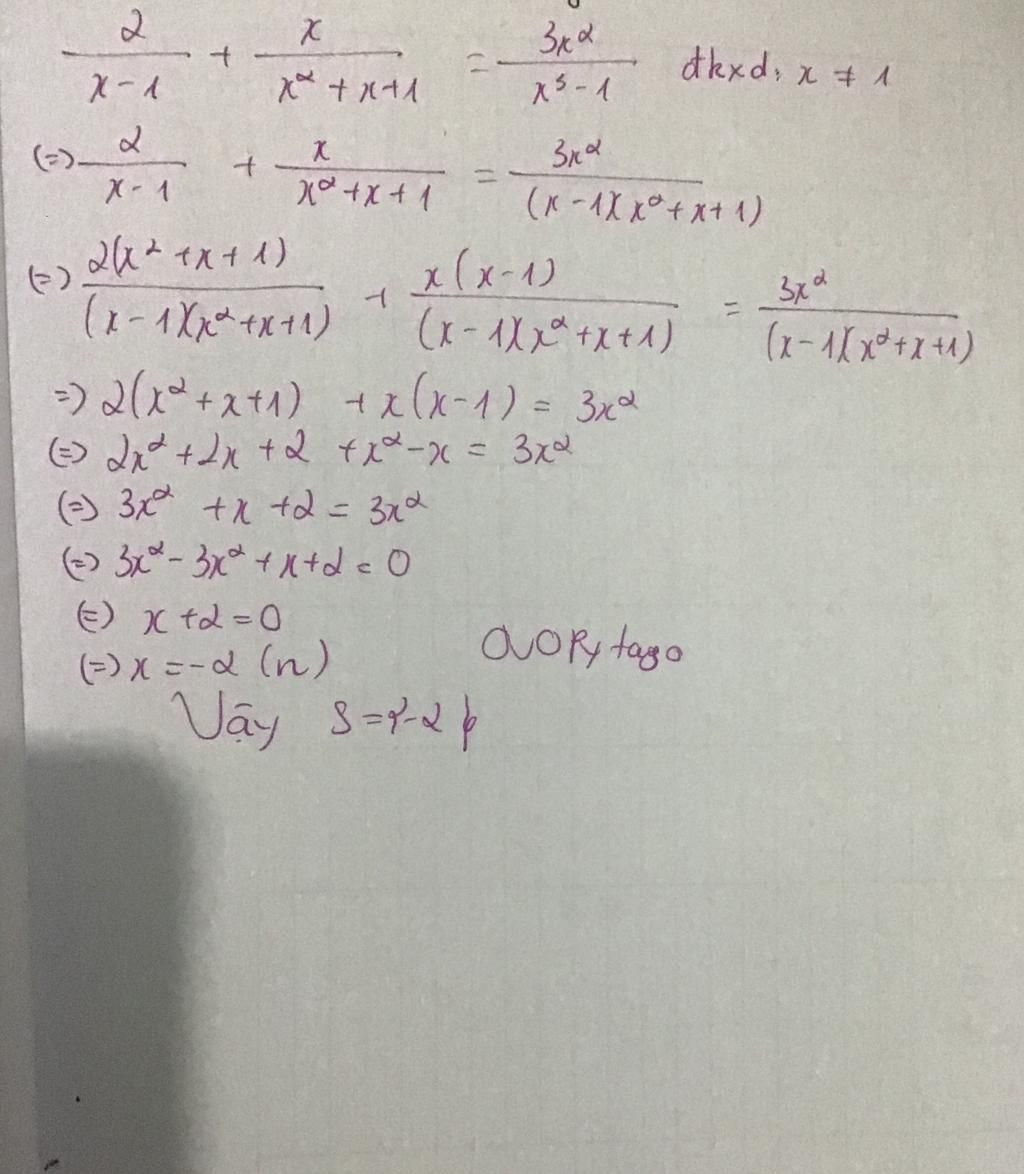 2/(x-1) + x/(x²+x+1) = 3x²/(x³-1) đkxđ: x ≠ 1
(=) 2/(x-1) + x/(x²+x+1) = 3x²/((x-1)(x²+x+1))
(=) 2(x²+x+1)/((x-1)(x²+x+1)) + x(x-1)/((x-1)(x²+x+1)) = 3x²/((x-1)(x²+x+1))
=) 2(x²+x+1) + x(x-1) = 3x²
(=) 2x²+2x+2 +x²-x = 3x²
(=) 3x² +x +2 = 3x²
(=) 3x²-3x²+x+2=0
(=) x+2=0
(=) x=-2 (n)
Vậy S={-2}